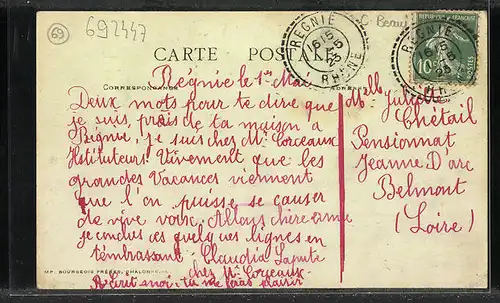 69
692447
C. Beau
CARTE POSTALE
REGNIE
16 15
5
25
RHONE
REGNIE
RÉPUBLIQUE FRANÇAISE
10
POSTES
CORRESPONDANCE
Régnié le 1er Mai
Deux mots pour te dire que
je suis près de ta maison a
Régnié, je suis chez Mr Corceaux
Instituteur. Vivement que les
grandes Vacances viennent
que l'on puisse se causer
de vive voix. Allons chère amie
je conclus ces quelques lignes en
t'embrassant. Claudia
chez Mr Corceaux
Ecrit moi, tu me feras plaisir
Melle Juliette
Chétail
Pensionnat
Jeanne D'arc
Belmont
(Loire)
MP. BOURGEOIS FRÈRES, CHALON-S-S.